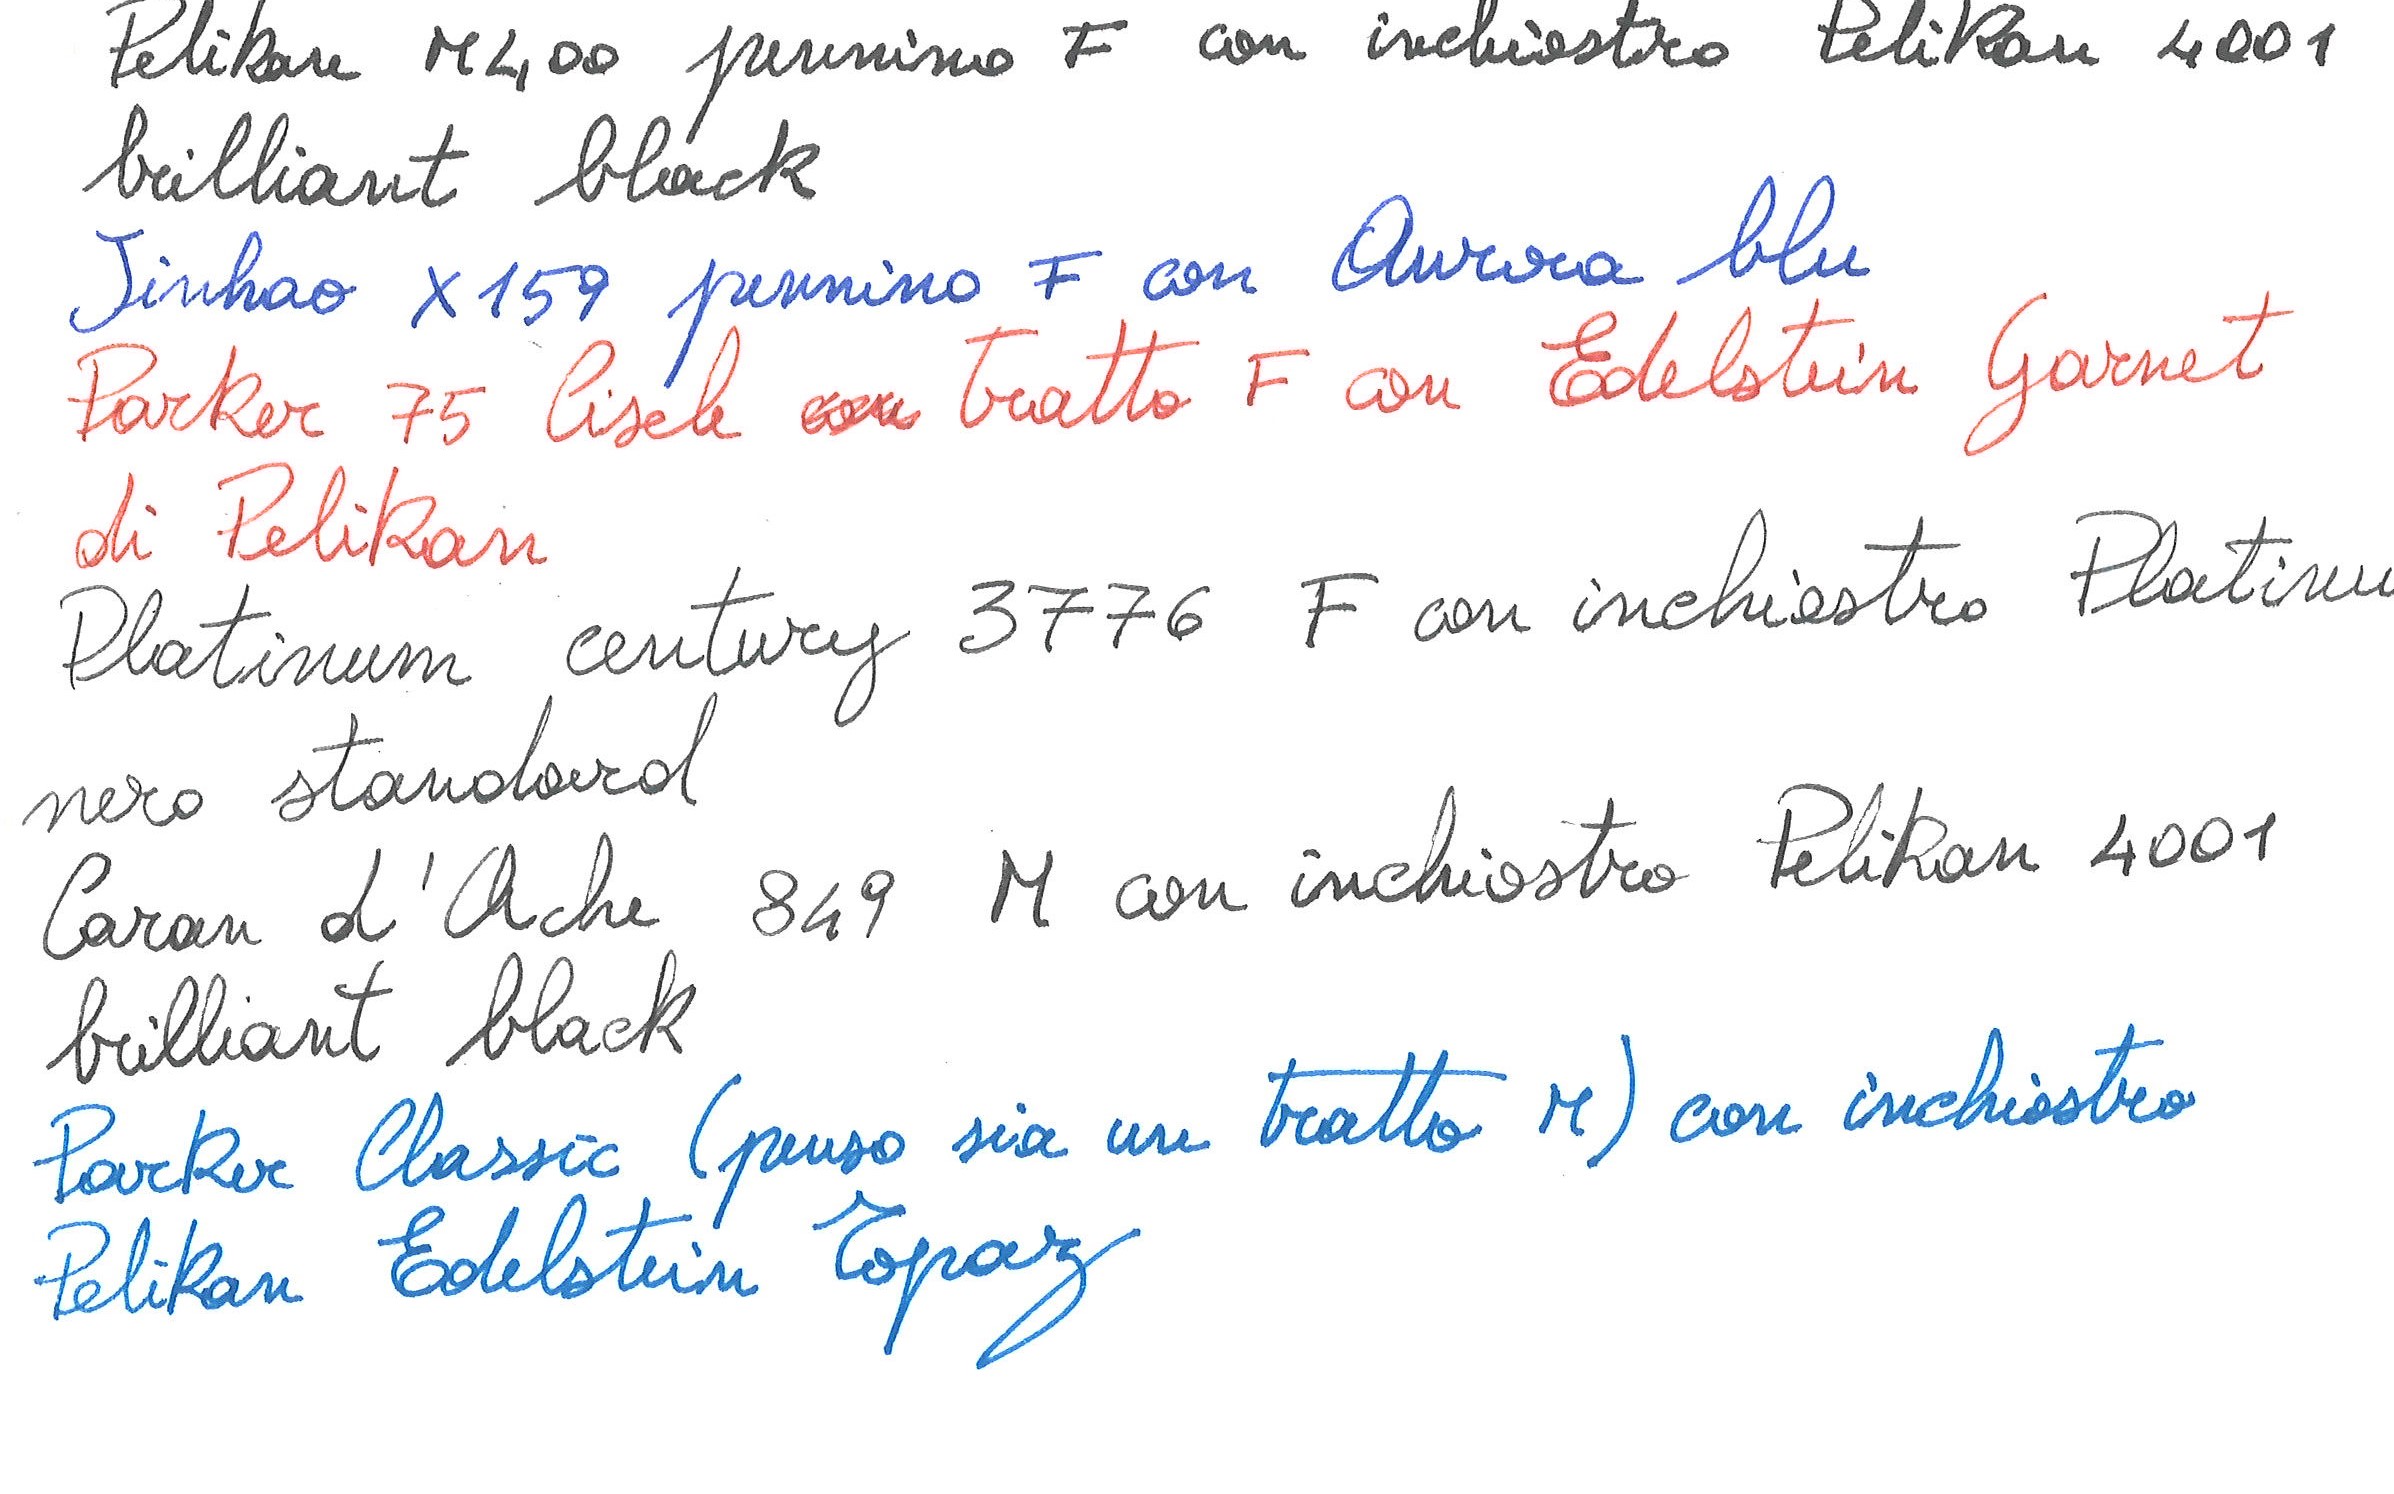 Pelikan M400 pennino F con inchiostro Pelikan 4001
brilliant black
Jinhao X159 pennino F con Aurora blu
Parker 75 Cisele con tratto F con Edelstein Garnet
di Pelikan
Platinum century 3776 F con inchiostro Platinu
nero standard
Caran d'Ache 849 M con inchiostro Pelikan 4001
brilliant black
Parker Classic (penso sia un tratto M) con inchiostro
Pelikan Edelstein Topaz